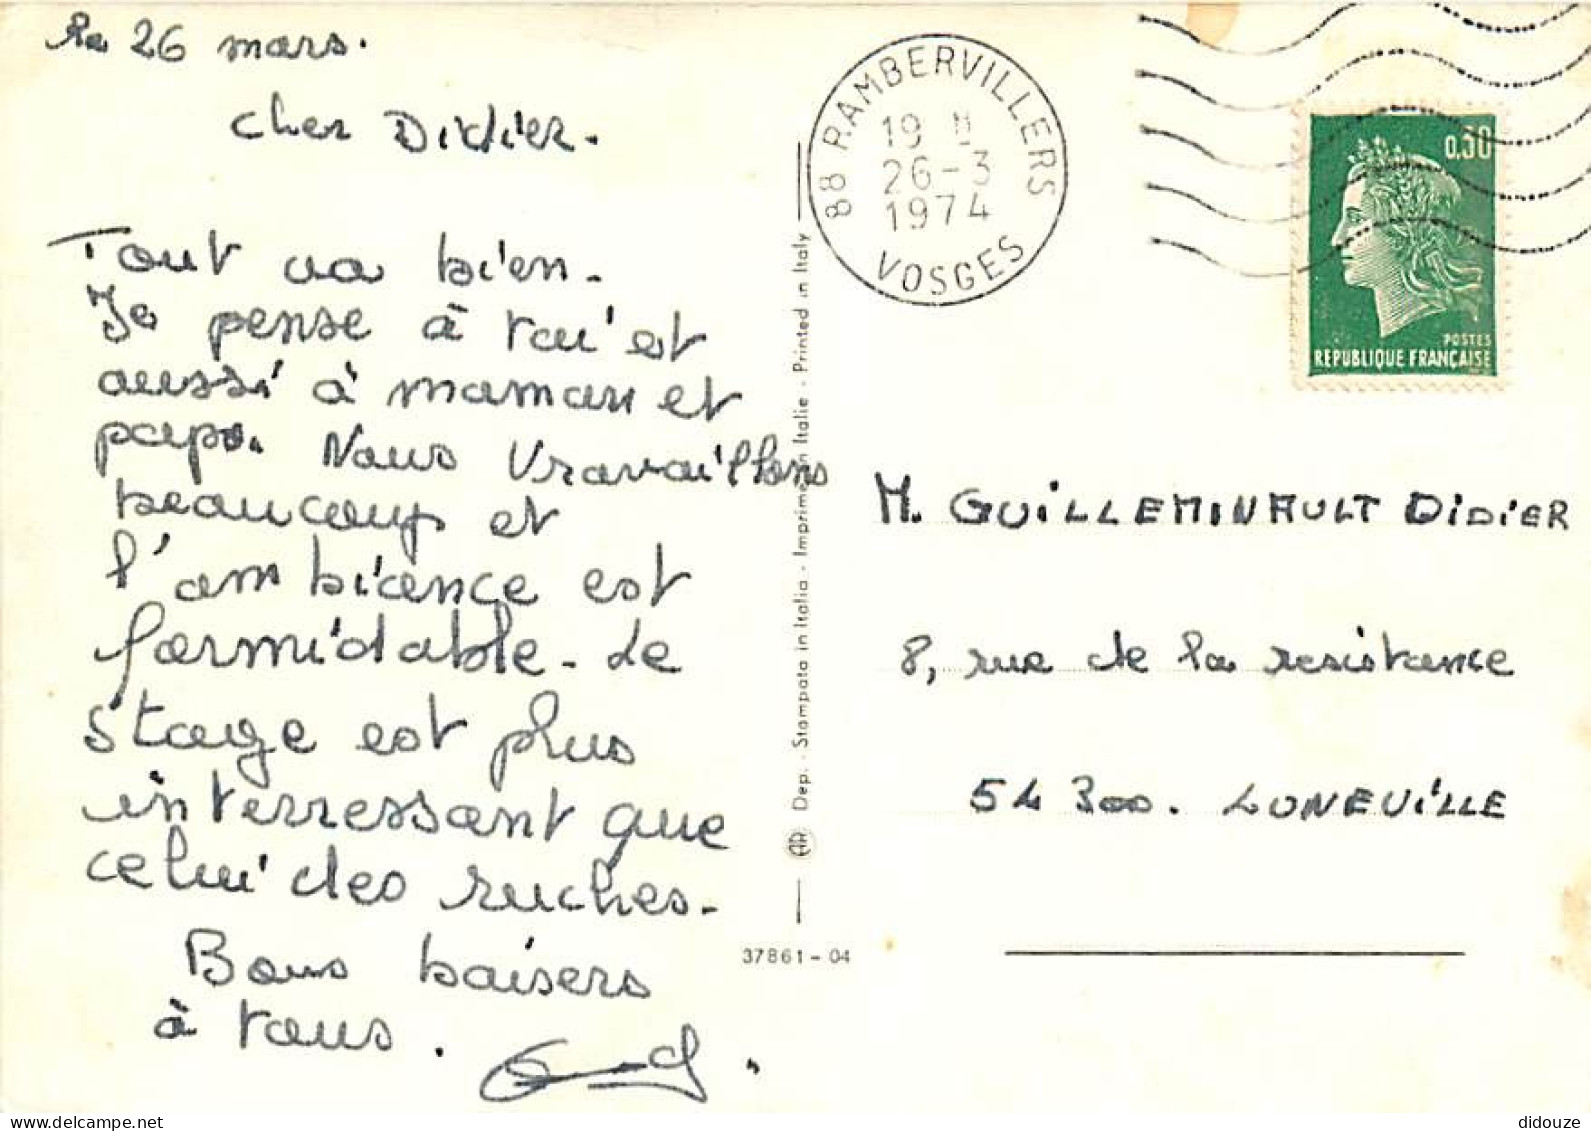 Le 26 mars.
Cher Didier.
Tout va bien.
Je pense à toi et
aussi à maman et
papa. Nous travaillons
beaucoup et
l'ambiance est
formidable. Le
stage est plus
interressant que
celui des ruches.
Bons baisers
à tous.
88 RAMBERVILLERS
19 H
26-3
1974
VOSGES
0,30
POSTES
REPUBLIQUE FRANÇAISE
M. GUILLEMINAULT DIDIER
8, rue de la resistance
54300. LUNEVILLE
Dep. - Stampato in Italia - Imprime en Italie - Printed in Italy
37861-04
delcampe.net
didouze